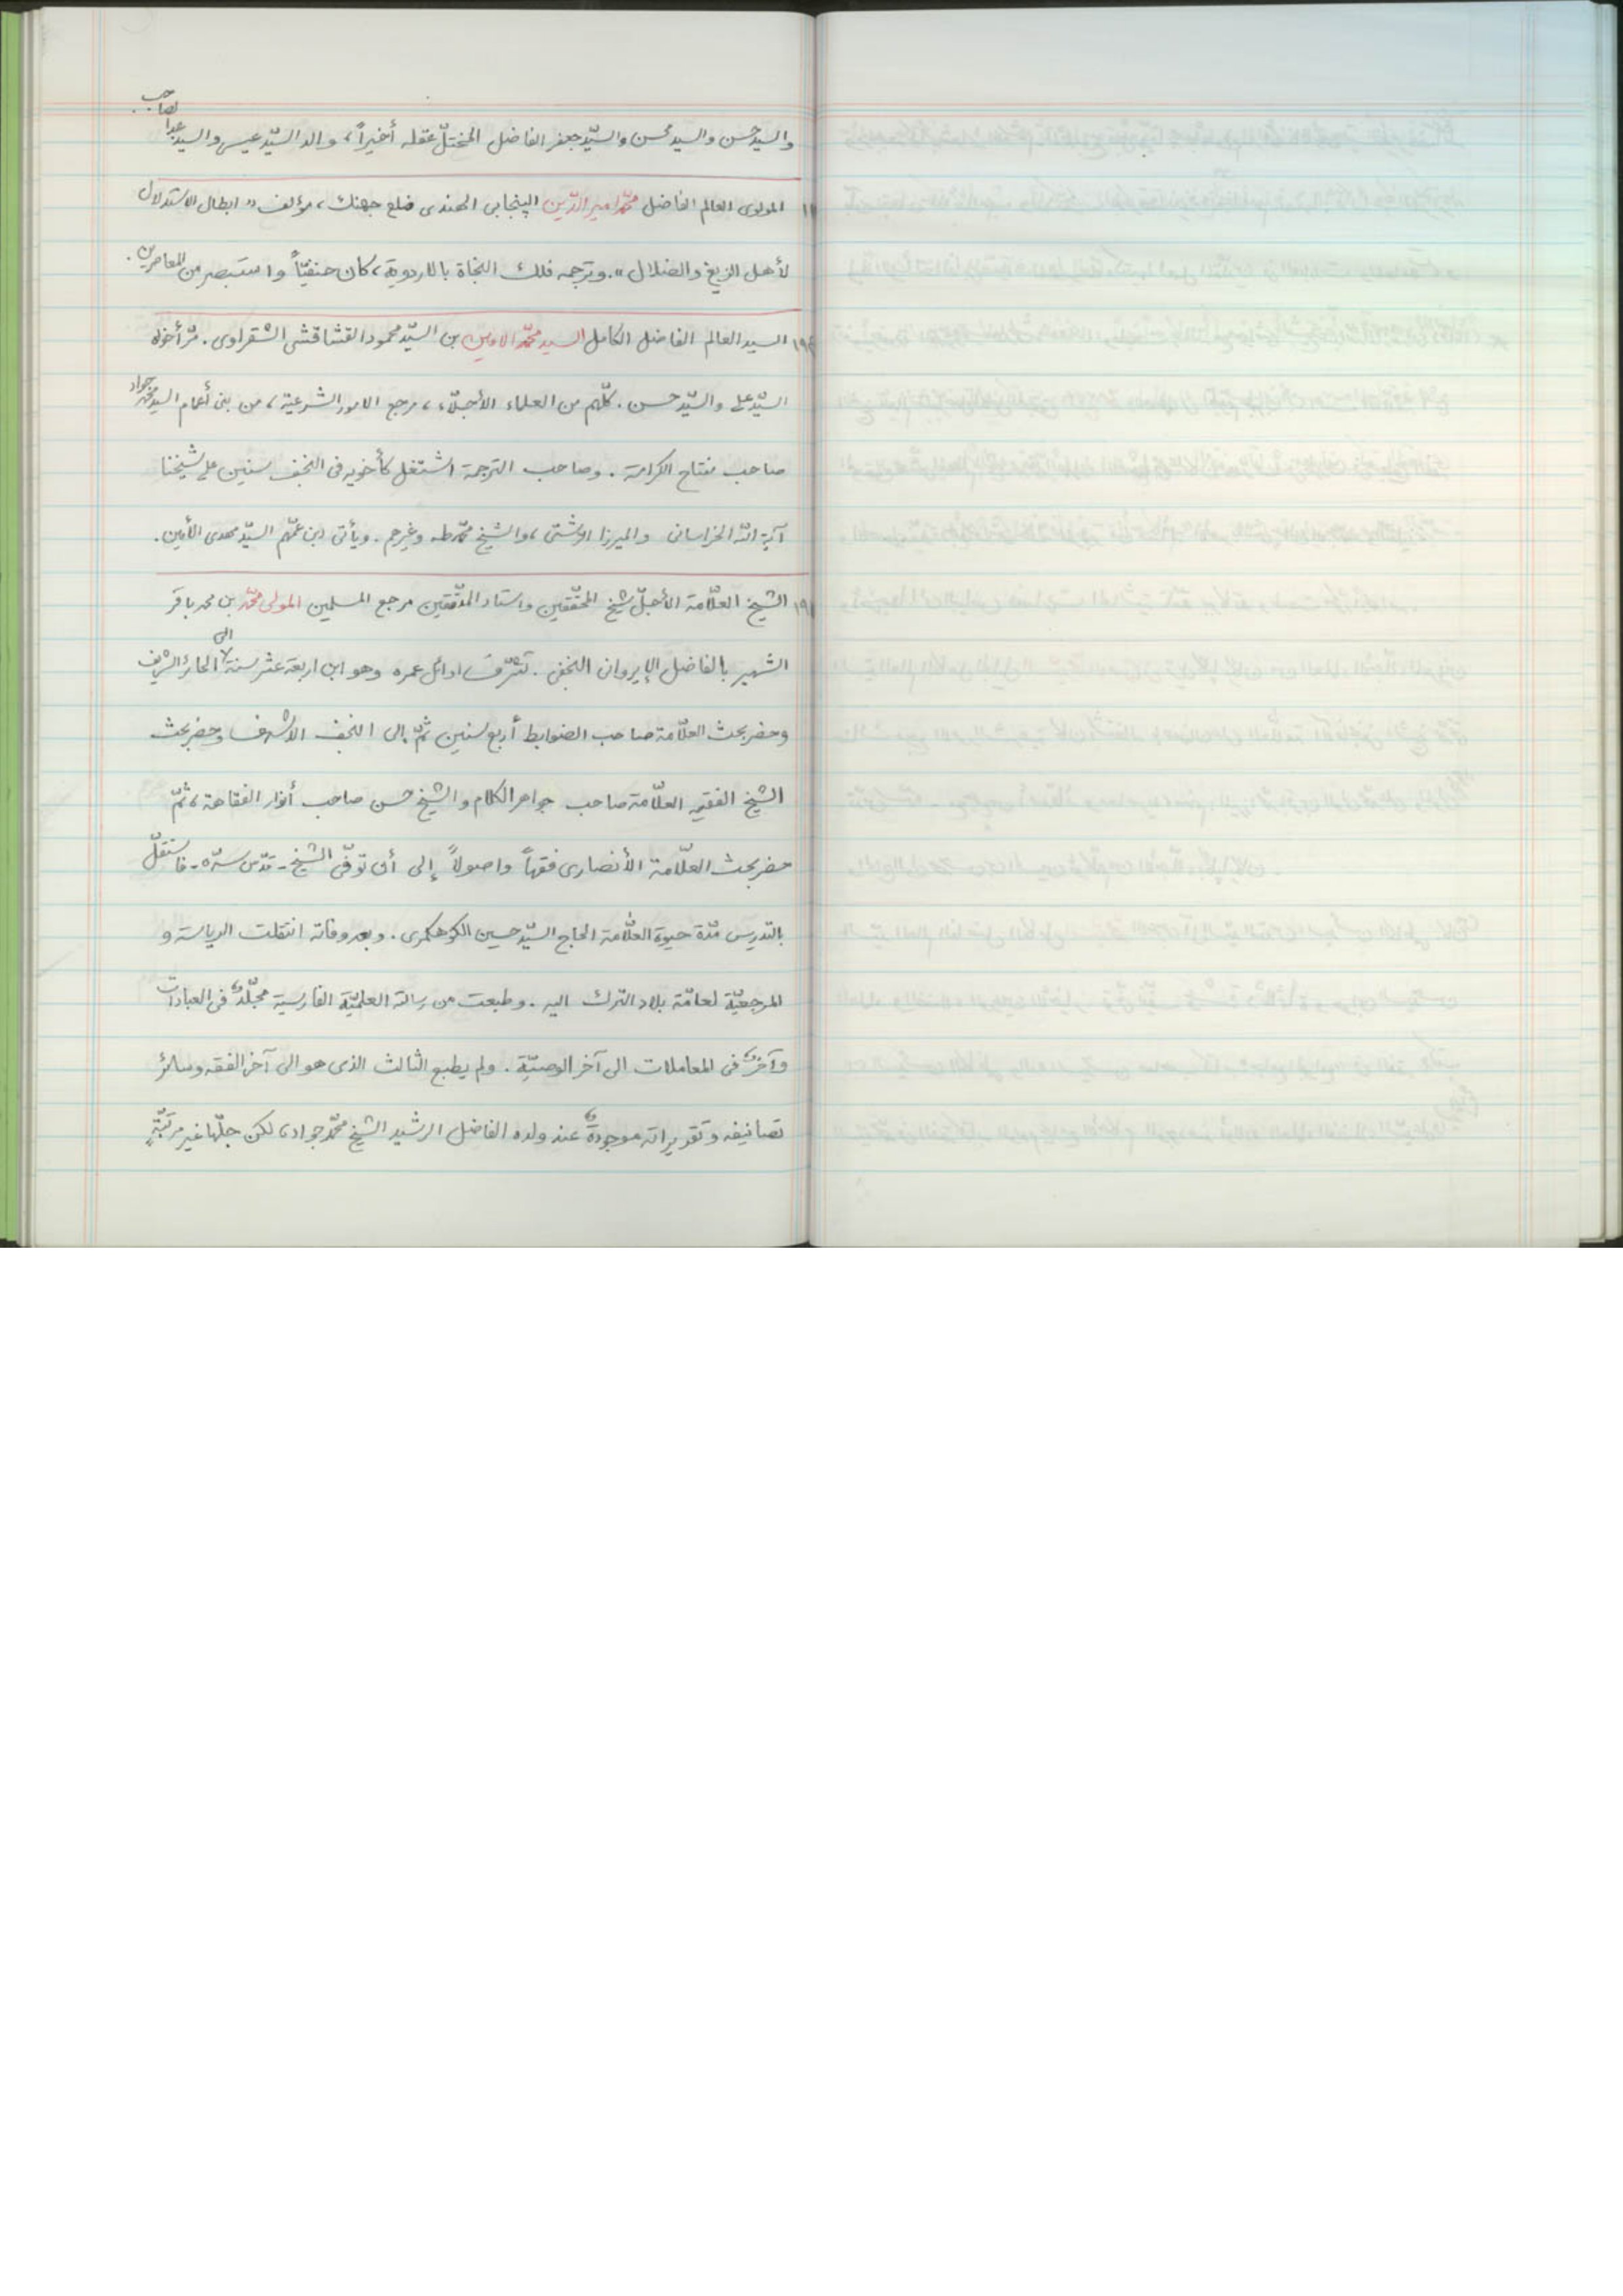 والسيد حسن والسيد محسن والسيّد جعفر الفاضل المختلّ عقله أخيراً، والد السيّد عيسى والسيّد عبدالصاحب.
المولوى العالم الفاضل محمّد امير الدّين الپنجابى الهندى ضلع جهنك، مؤلف «ابطال الاستدلال
لأهل الزيغ والضلال». وترجمه فلك النجاة بالاردوية، كان حنفيّاً واستبصر من المعاصرين.
السيد العالم الفاضل الكامل السيد محمّد الامين بن السيّد محمود القشاقشى الشقراوى. مرّ أخواه
السيّد على والسيّد حسن. كلّهم من العلماء الأجلّاء، مرجع الامور الشرعية، من بنى أعمام السيد محمّد جواد
صاحب مفتاح الكرامة. وصاحب الترجمة اشتغل كأخويه فى النجف سنين على شيخنا
آية الله الخراسانى والميرزا الرشتى، والشيخ محمّد طه وغيرهم. ويأتى ابن عمّهم السيّد مهدى الأمين.
الشيخ العلّامة الأجلّ شيخ المحقّقين واستاد المدقّقين مرجع المسلمين المولى محمّد بن محمد باقر
الشهير بالفاضل الإيروانى النجفى. تشرّف اوائل عمره وهو ابن اربعة عشر سنة الى الحائر الشريف
وحضر بحث العلّامة صاحب الضوابط أربع سنين ثمّ إلى النجف الاشرف وحضر بحث
الشيخ الفقيه العلّامة صاحب جواهر الكلام والشيخ حسن صاحب أنوار الفقاهة، ثمّ
حضر بحث العلّامة الأنصارى فقهاً واصولاً إلى أن توفّى الشيخ - قدّس سرّه - فاستقلّ
بالتدريس مدّة حيوة العلّامة الحاج السيّد حسين الكوهكمرى. وبعد وفاته انتقلت الرياسة و
المرجعيّة لعامّة بلاد الترك اليه. وطبعت من رسالته العلميّة الفارسية مجلّد فى العبادات
وآخر فى المعاملات الى آخر الوصيّة. ولم يطبع الثالث الذى هو الى آخر الفقه وسائر
تصانيفه وتقريراته موجودة عند ولده الفاضل الرشيد الشيخ محمّد جواد، لكن جلّها غير مرتبّة